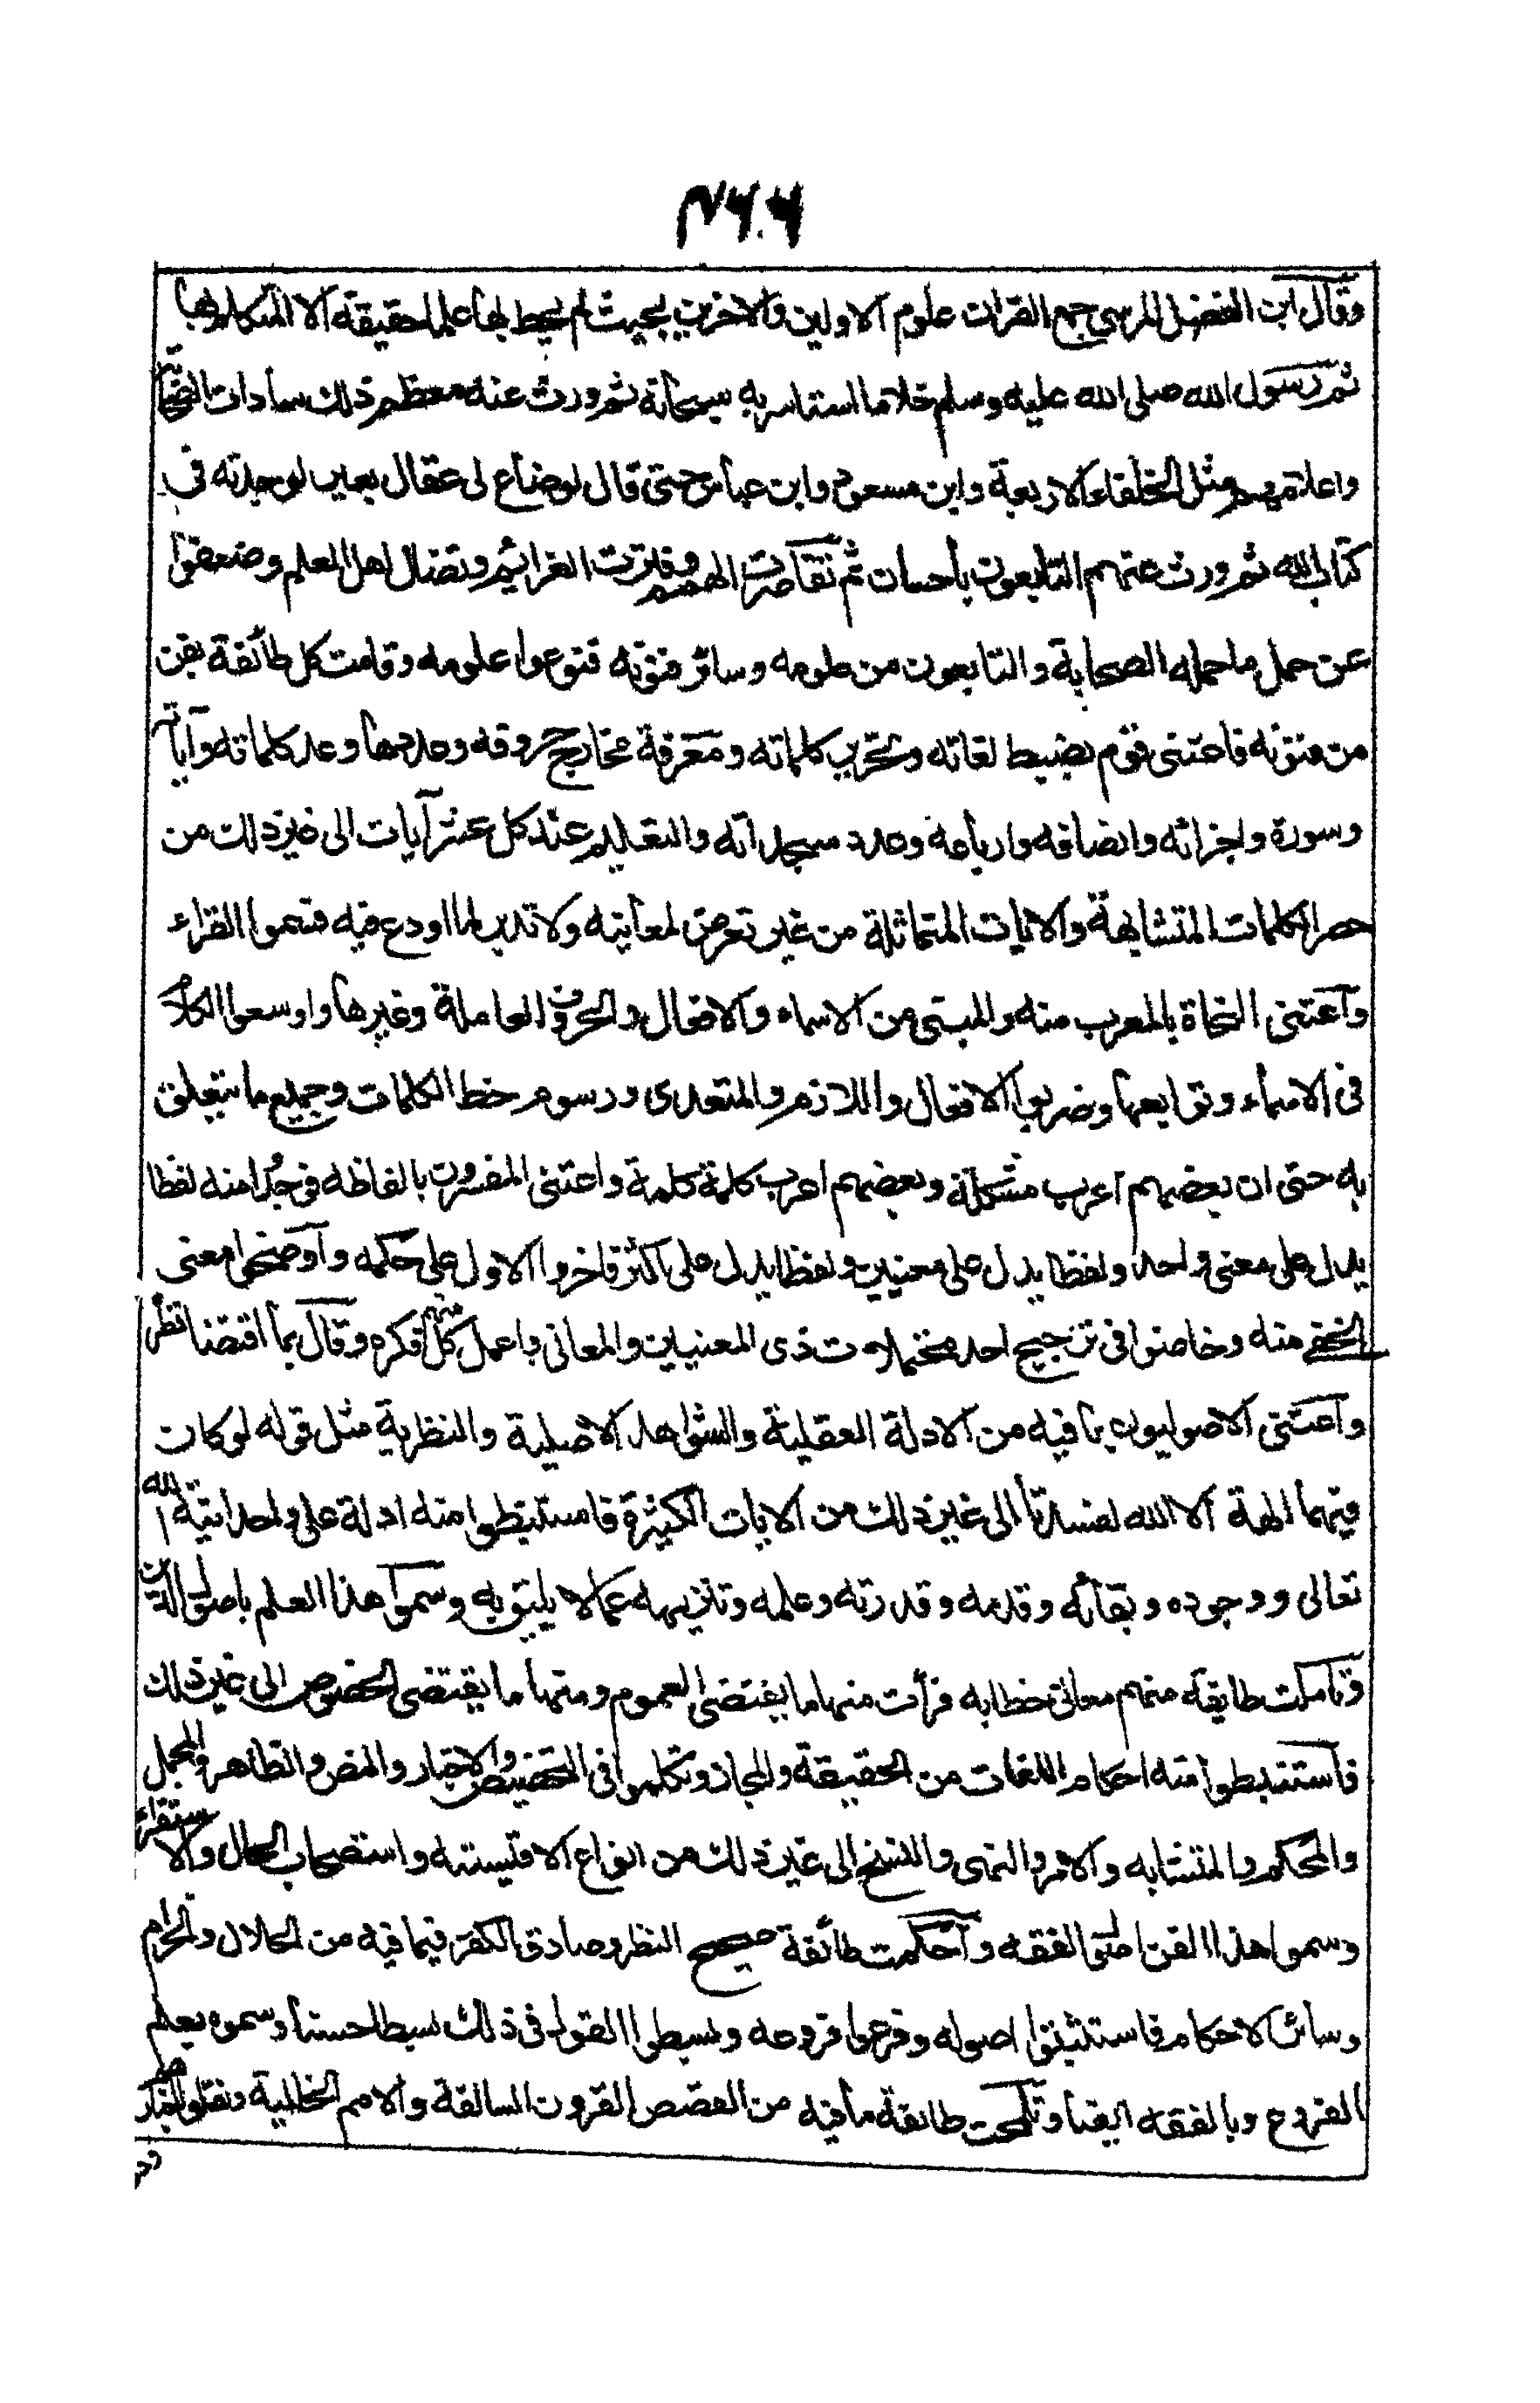 وقال ابن الفضل المرسي جمع القران علوم الاولين والاخرين بحيث لم يحط بها علما حقيقة الا المتكلم بها
ثم رسول الله صلى الله عليه وسلم خلا ما استاسر به سبحانه ثم ورث عنه معظم ذلك سادات الصحابة
واعلامهم مثل الخلفاء الاربعة وابن مسعود وابن عباس حتى قال لو ضاع لى عقال بعير لوجدته فى
كتاب الله ثم ورث عنهم التابعون باحسان ثم تقاصرت الهمم وفترت العزائم وتضال اهل العلم وضعفوا
عن حمل ما حمله الصحابة والتابعون من علومه وسائر فنونه فنوعوا علومه وقامت كل طائفة بفن
من فنونه فاعتنى قوم بضبط لغاته وتحرير كلماته ومعرفة مخارج حروفه وعددها وعد كلماته وآياته
وسوره واجزائه وانصافه وارباعه وعدد سجداته والتعليم عند كل عشر آيات الى غير ذلك من
حصر الكلمات المتشابهة والايات المتماثلة من غير تعرض لمعانيه ولا تدبر لما اودع فيه فسموا القراء
واعتنى النحاة بالمعرب منه والمبنى من الاسماء والافعال والحروف العاملة وغيرها واوسعوا الكلام
فى الاسماء وتوابعها وضروب الافعال واللازم والمتعدى ورسوم خط الكلمات وجميع ما يتعلق
به حتى ان بعضهم اعرب مشكله وبعضهم اعرب كلمة كلمة واعتنى المفسرون بالفاظه فوجدوا منه لفظا
يدل على معنى واحد ولفظا يدل على معنيين ولفظا يدل على اكثر فاجروا الاول على حكمه واوضحوا معنى
الخفى منه وخاضوا فى ترجيح احد محتملات ذى المعنيين والمعانى واعمل كل منهم فكره وقال بما اقتضا نظره
واعتنى الاصوليون بما فيه من الادلة العقلية والشواهد الاصلية والنظرية مثل قوله لو كان
فيهما الهة الا الله لفسدتا الى غير ذلك من الايات الكثيرة فاستنبطوا منه ادلة على واحدانية الله
تعالى ووجوده وبقائه وقدمه وقدرته وعلمه وتنزيهه عما لا يليق به وسموا هذا العلم باصول الدين
وتاملت طايفة منهم معانى خطابه فرأت منها ما يقتضى العموم ومنها ما يقتضى الخصوص الى غير ذلك
فاستنبطوا منه احكام اللغات من الحقيقة والمجاز وتكلموا فى التخصيص والاخبار والنص والظاهر والمجمل
والمحكم والمتشابه والامر والنهى والنسخ الى غير ذلك من انواع الاقيسته واستصحاب الحال والاستقراء
وسموا هذا الفن اصول الفقه واحكمت طائفة صحيح النظر وصادق الكفر فيما فيه من الحلال والحرام
وسائر الاحكام فاستثبتوا اصوله وفرعوا فروعه وبسطوا القول فى ذلك بسطا حسنا وسموه بعلم
الفروع وبالفقه ايضا وتلمحت طائفة ما فيه من القصص القرون السالفة والامم الخالية ونقلوا اخبارهم